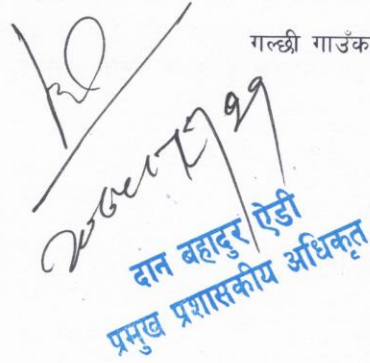 गल्छी गाउँक
दान बहादुर ऐडी
प्रमुख प्रशासकीय अधिकृत